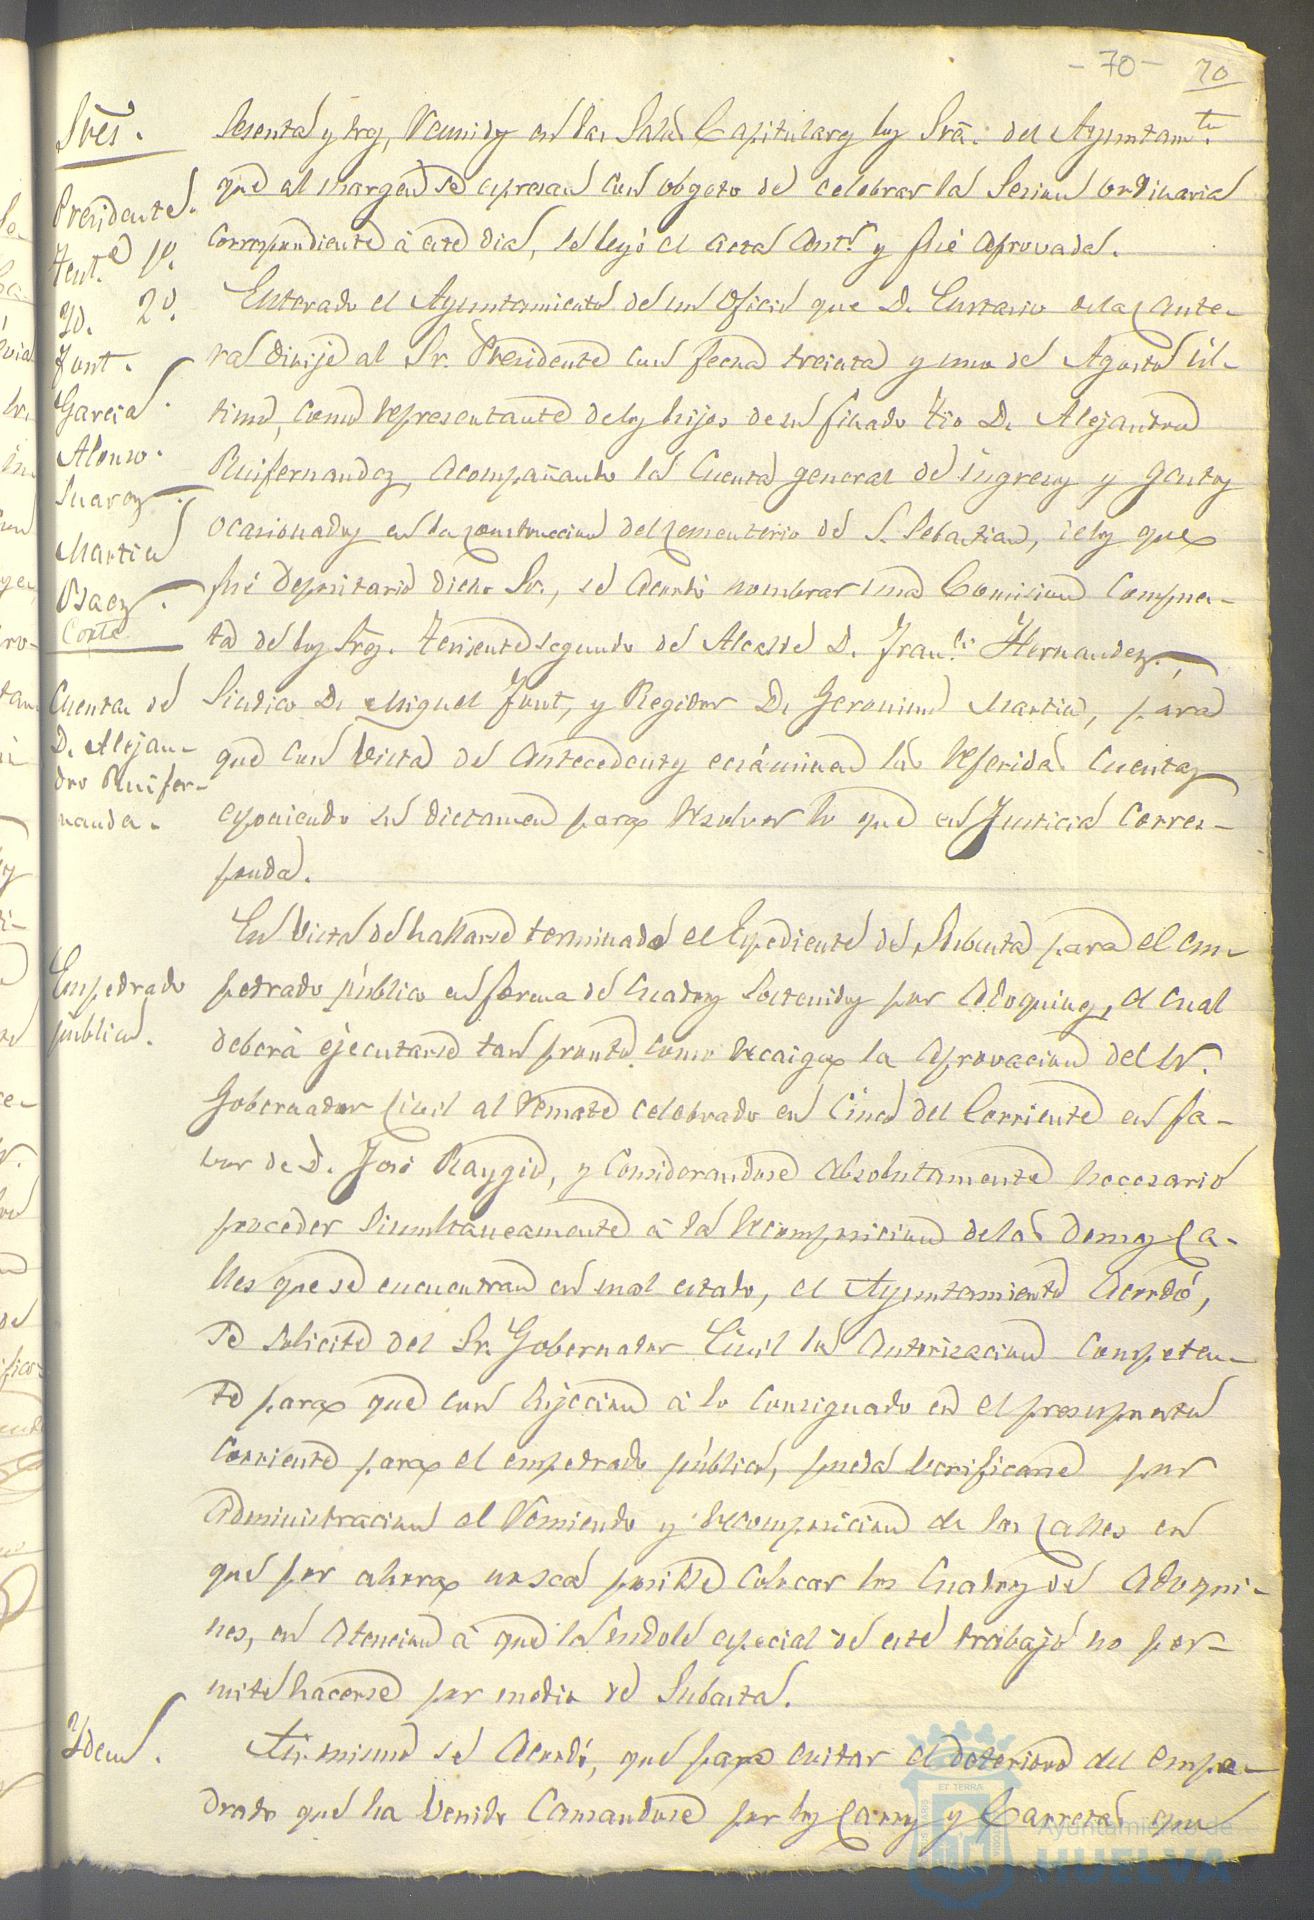 - 70 - 70
Sres.
Presidente.
Tent.e 1º.
Yd. 2º.
Font.
Garcia.
Alonso.
Suarez.
Martin
Baez.
Conte
sesenta y tres, Reunidos en las Salas Capitulares los Sres. del Ayuntam.to
que al margen se expresan con obgeto de celebrar la Sesion ordinaria
correspondiente á este dia, se leyó el acta ant.r y fué aprovada.
Cuenta de
D. Alejan-
dro Ruifer-
nandez.
Enterado el Ayuntamiento de un oficio que D. Eustasio de la Cante-
ra dirije al Sr. Presidente con fecha treinta y uno de Agosto úl-
timo, como representante de los hijos de su finado tio D. Alejandro
Ruifernandez, acompañando la Cuenta general de ingresos y gastos
ocasionados en la construccion del Cementerio de S. Sebastian, de los que
fué depositario dicho Sr., se acordó nombrar una Comision compues-
ta de los Sres. Teniente segundo de Alcalde D. Fran.co Hernandez,
Sindico D. Miguel Font, y Regidor D. Geronimo Martin, para
que con vista de antecedentes ecsáminen las referidas Cuentas
esponiendo su dictamen para resolver lo que en Justicia Corres-
ponda.
Empedrado
publico.
En vista de hallarse terminado el Espediente de Subasta para el em-
pedrado público en forma de Cuadros sostenidos por adoquines, el cual
deberá ejecutarse tan pronto como recaiga la aprovacion del Sr.
Gobernador Civil al remate celebrado en cinco del Corriente en fa-
vor de D. José Raygio, y Considerandose absolutamente necesario
proceder simultaneamente á la recomposicion de las demas Ca-
lles que se encuentran en mal estado, el Ayuntamiento acordó,
se solicite del Sr. Gobernador Civil la autorizacion competen-
te para que con sujecion á lo consignado en el presupuesto
corriente para el empedrado público, pueda verificarse por
administracion el remiendo y recomposicion de las Calles en
que por ahora no sea posible colocar los Cuadros de adoqui-
nes, en atencion á que la índole especial de este trabajo no per-
mite hacerse por medio de Subasta.
Ydem.
Asi mismo se acordó, que para evitar el deterioro del empe-
drado que ha venido Causandose por los Carros y Carretas que
ET TERRA
Ayuntamiento de
HUELVA